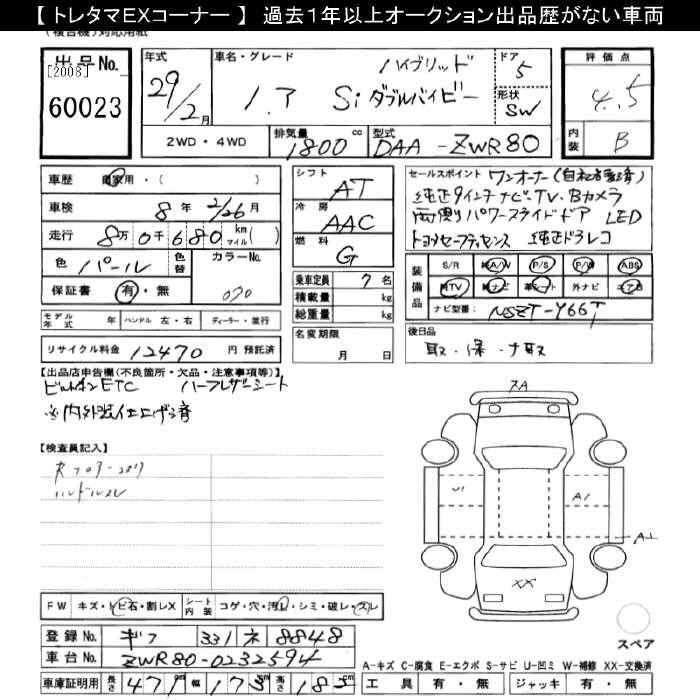 【 トレタマEXコーナー 】 過去1年以上オークション出品歴がない車両
(複合機)対応用紙
出品No. [2008] 60023
年式 29/2月
車名・グレード ハイブリッド
Si ダブルバイビー
ドア 5
形状 SW
評価点 4.5
内装 B
2WD・4WD
排気量 1800 cc
型式 DAA-ZWR80
車歴 自家用・( )
車検 8年 2/26月
走行 8万 0千 680 km マイル( )
色 パール
色替
カラーNo. 070
保証書 有・無
シフト AT
冷房 AAC
燃料 G
乗車定員 7名
積載量 kg
総重量 kg
名変期限 月 日
セールスポイント ワンオーナー
純正9インチナビ・TV、Bカメラ
両側パワースライドドア LED
トヨタセーフティセンス 純正ドラレコ
装備品 S/R A/W P/S P/W ABS
TV ナビ 革シート 外ナビ エアB
ナビ型番: NSZT-Y66T
後日品
取・保・ナ取
モデル年式 年 ハンドル 左・右 ディーラー・並行
リサイクル料金 12470 円 預託済
【出品店申告欄(不良箇所・欠品・注意事項等)】
ビルトインETC ハーフレザーシート
※内外装仕上げ済
【検査員記入】
ハンドルスレ
スA
U1
A1
A2
XX
FW キズ・トビ石・割レX シート内装 コゲ・穴・汚レ・シミ・破レ・スレ
登録No. ギフ 331 ネ 8848
車台No. ZWR80-0232594
車庫証明用 長さ 471 幅 173 高さ 183cm
スペア
A-キズ C-腐食 E-エクボ S-サビ U-凹ミ W-補修 XX-交換済
工具 有・無 ジャッキ 有・無